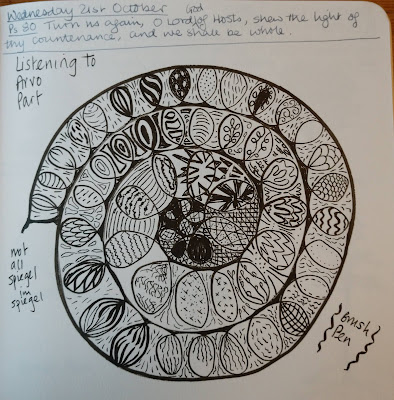 Wednesday 21st October
Ps 80 Turn us again, O Lord God of Hosts, shew the light of
thy countenance, and we shall be whole.
Listening to
Arvo
Part
not
all
spiegel
im
spiegel
Brush
Pen